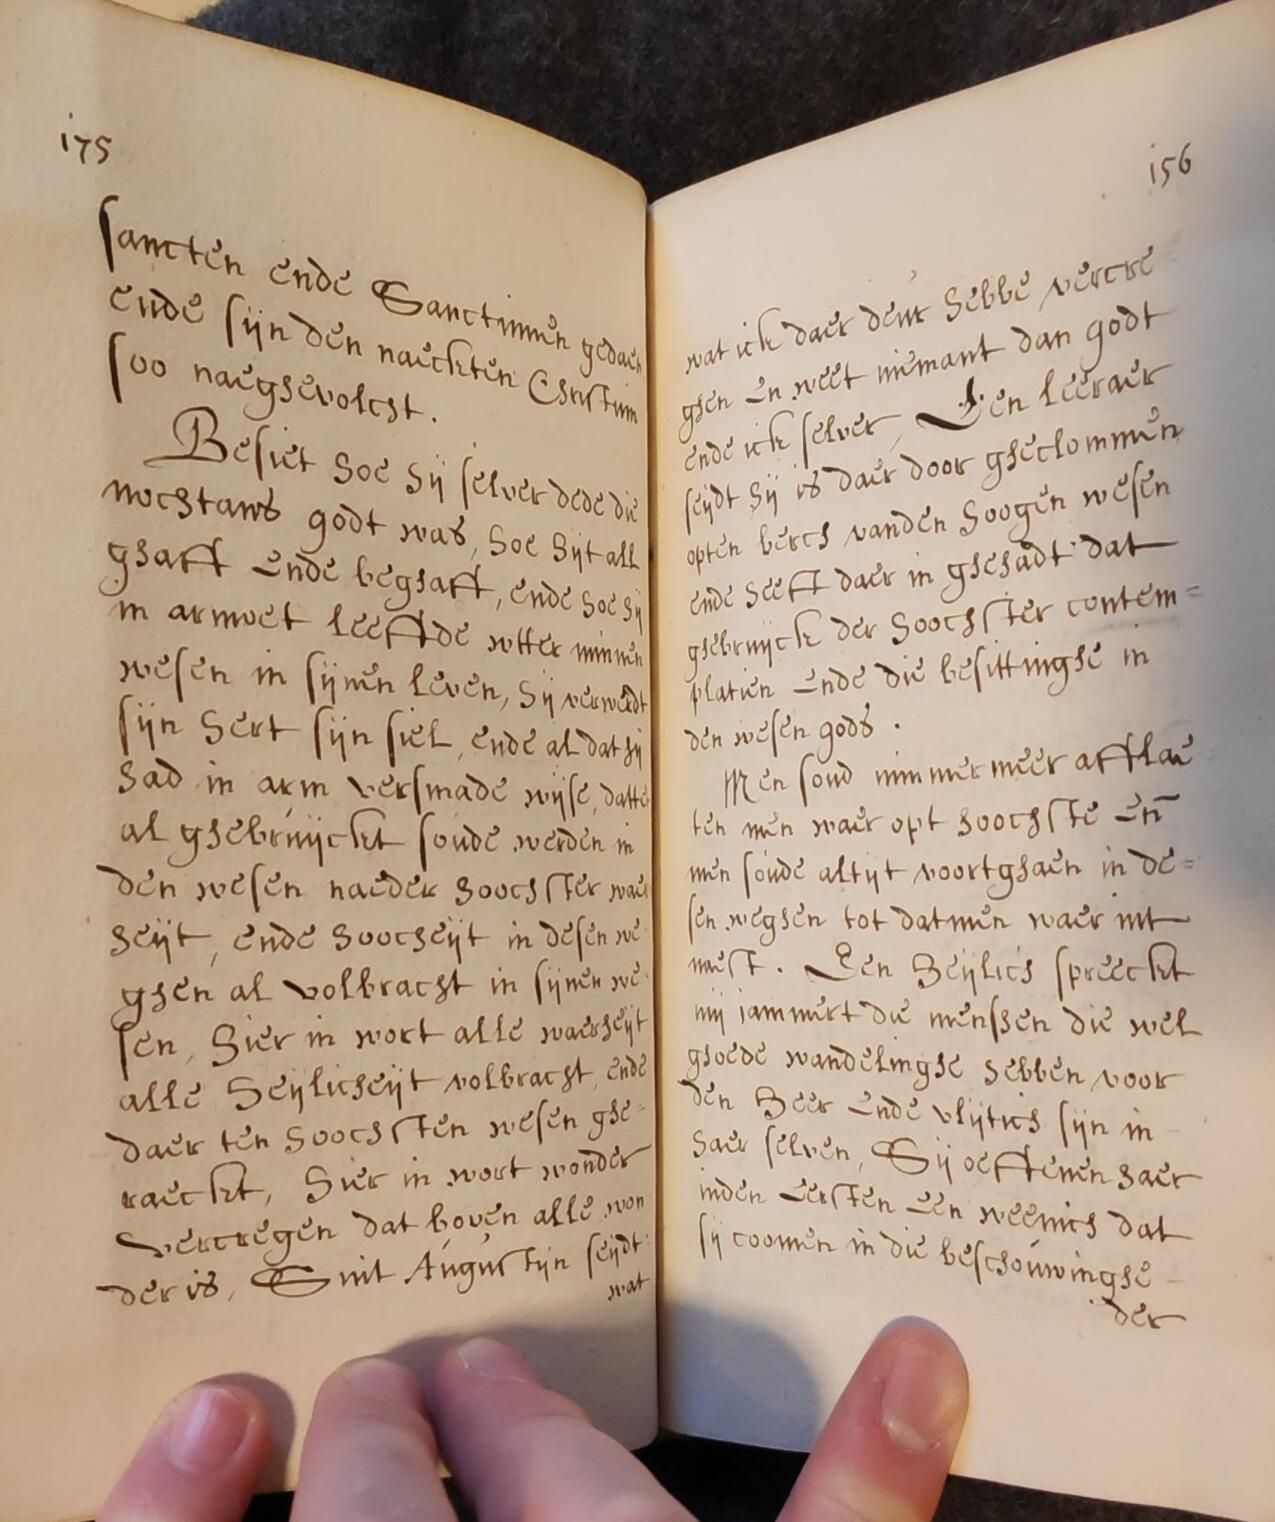 175
sancten ende Sanctinnen gedaen
ende sijn den naeckten Christum
soo naeghevolcht.
Besiet hoe hij selver dede die
nochtans godt was, hoe hijt all
ghaff ende beghaff, ende hoe hij
in armoet leeffde wtter minnen
wesen in sijnen leven, hij verwerdt
sijn hert sijn siel, ende al dat hij
had in arm versmade wijse, datter
al ghebruijckt soude werden in
den wesen naeder hoochster waer
heijt, ende hoocheijt in desen we
ghen al volbracht in sijnen we
sen, Hier in wort alle waerheijt
alle heijlicheijt volbracht, ende
daer ten hoochsten wesen ghe=
raeckt, Hier in wort wonder
vercregen dat boven alle won
der is, Sint Augustijn seijdt:
wat
156
wat ick daer deur hebbe vercre
ghen en weet niemant dan godt
ende ick selver, Een leeraer
seijdt hij is daer door gheclommen
opten berch vanden hoogen wesen
ende heeft daer in ghehadt dat
ghebruijck der hoochster contem=
platien ende die besittinghe in
den wesen gods.
Men soud nimmermeer afflae
ten men waer opt hoochste en̄
men soude altijt voortghaen in de=
sen weghen tot datmen waer int
naest. Een Heijlich spreeckt
mij jammert die menschen die wel
ghoede wandelinghe hebben voor
den Heer ende vlijtich sijn in
haer selven, Sij oeffenen haer
inden eersten een weenich dat
sij coomen in die beschouwinghe
der